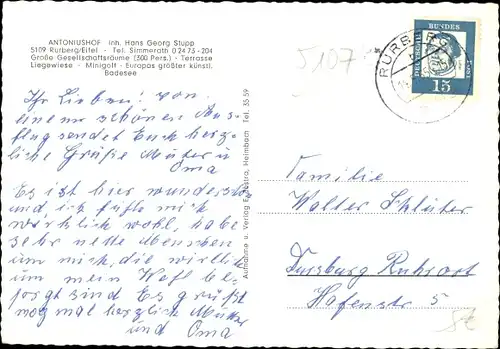 ANTONIUSHOF Inh. Hans Georg Stupp
5109 Rurberg/Eifel - Tel. Simmerath 02473-204
Große Gesellschaftsräume (300 Pers.) - Terrasse
Liegewiese - Minigolf - Europas größter künstl.
Badesee
5107
RURBERG
DEUTSCHE BUNDESPOST
15
Ihr Lieben! von
einem schönen Aus-
flug sendet Euch herz-
liche Grüße Mutter u
Oma
Es ist hier wunderschön
und ich fühle mich
wirklich wohl, habe
sehr nette Menschen
um mich, die wirklich
um mein Wohl be-
sorgt sind Es grüßt
nogmal herzlich Mutter
und Oma
Aufnahme u. Verlag Heimbach Tel. 35 59
Familie
Walter Schlüter
Duisburg Ruhrort
Hafenstr 5
8€